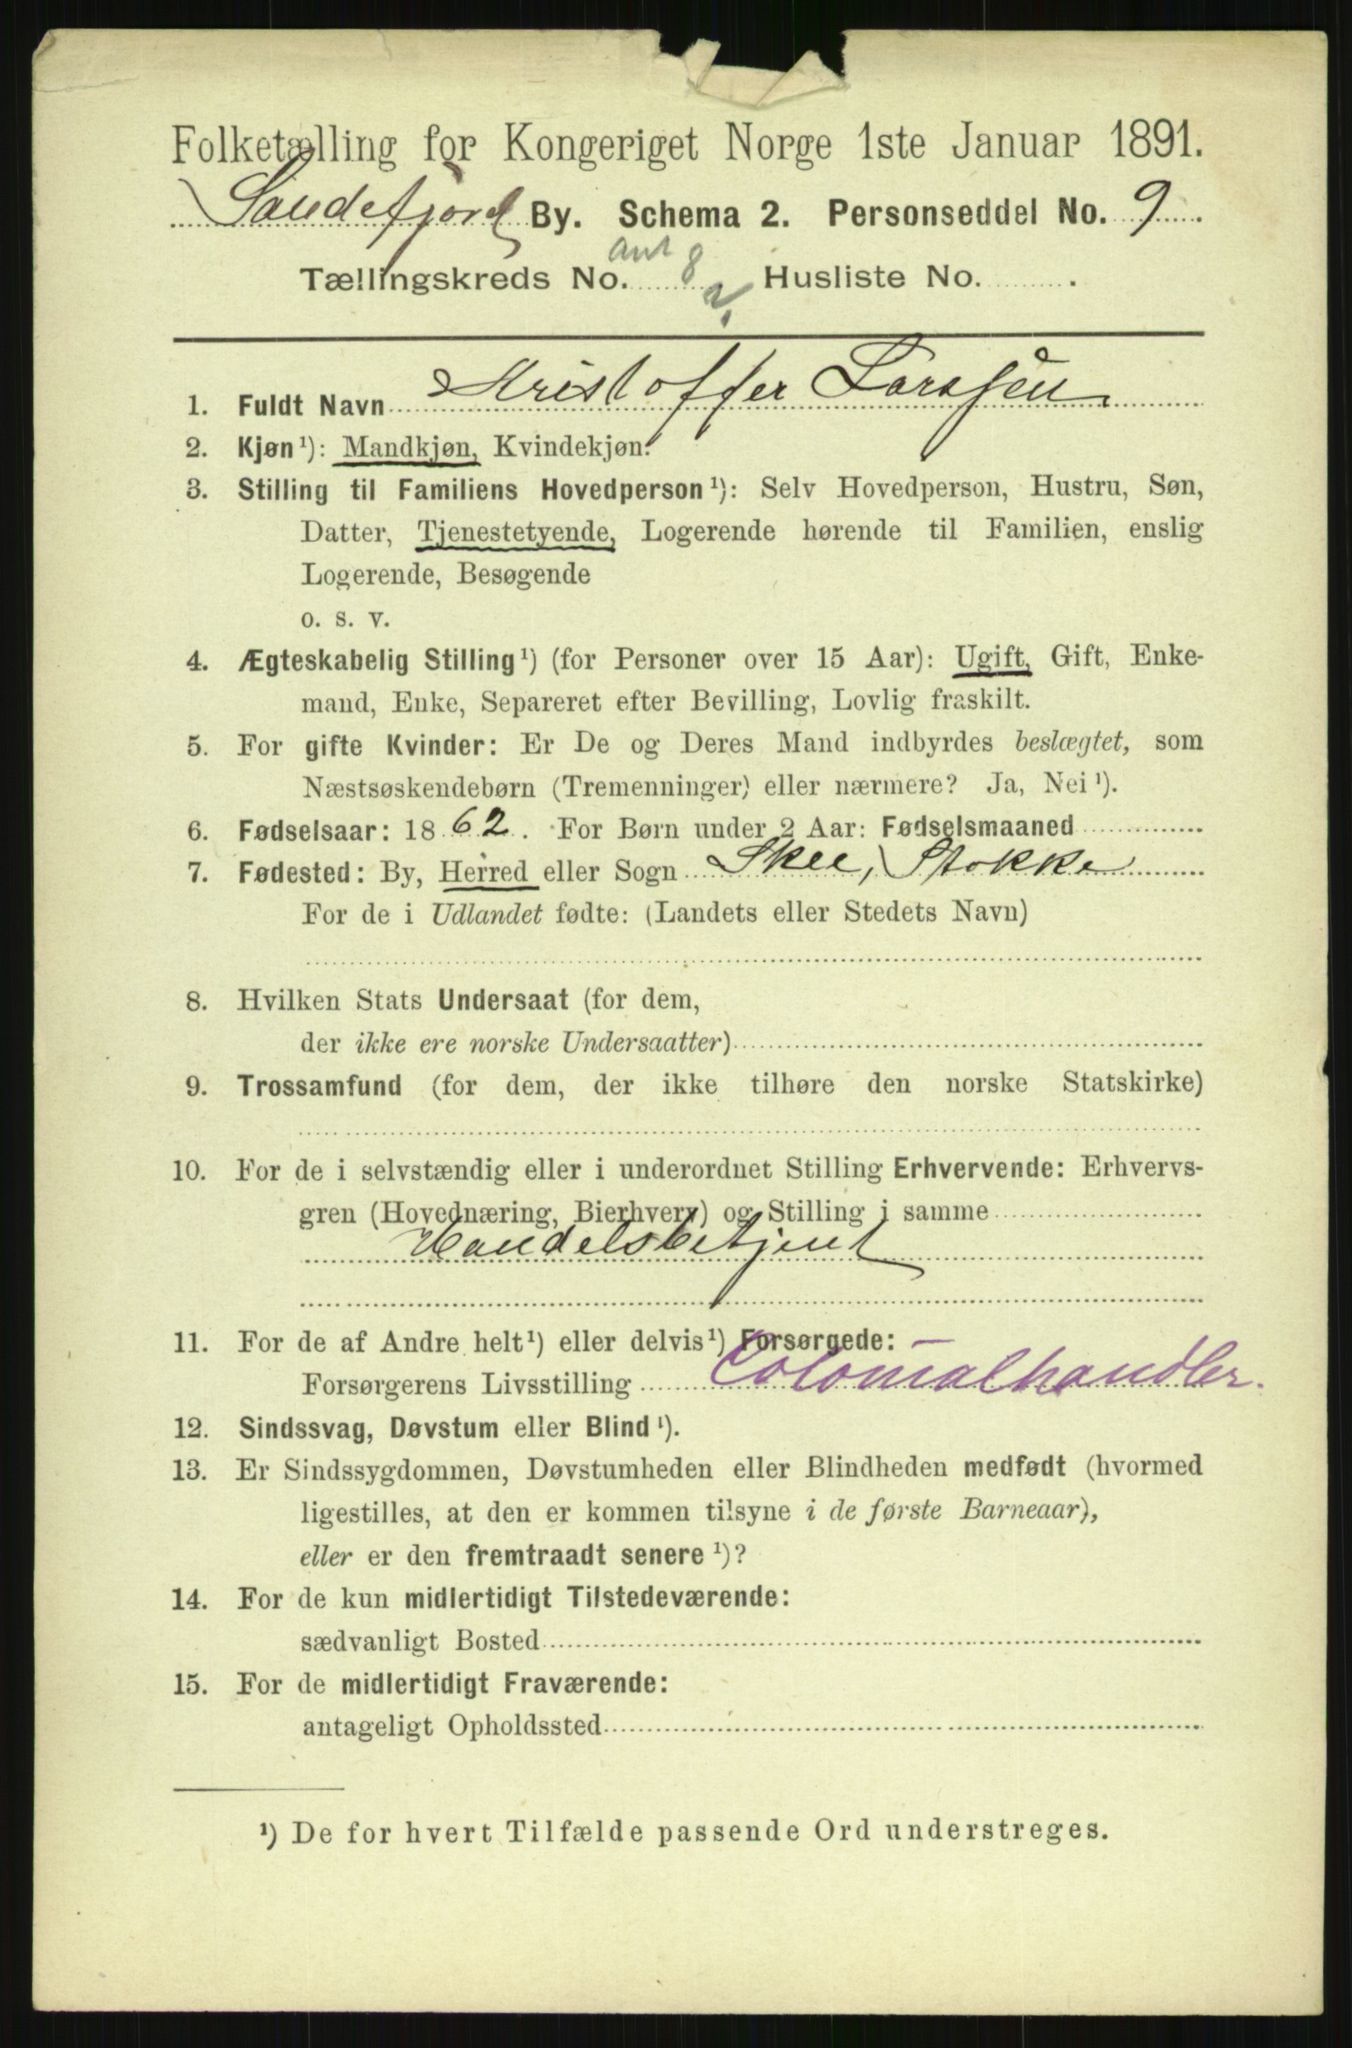 Folketælling for Kongeriget Norge 1ste Januar 1891.
Sandefjord By. Schema 2. Personseddel No. 9.
Tællingskreds No. 8 Husliste No. .
1. Fuldt Navn Kristoffer Larssen
2. Kjøn¹): Mandkjøn, Kvindekjøn.
3. Stilling til Familiens Hovedperson¹): Selv Hovedperson, Hustru, Søn,
Datter, Tjenestetyende, Logerende hørende til Familien, enslig
Logerende, Besøgende
o. s. v.
4. Ægteskabelig Stilling¹) (for Personer over 15 Aar): Ugift, Gift, Enke-
mand, Enke, Separeret efter Bevilling, Lovlig fraskilt.
5. For gifte Kvinder: Er De og Deres Mand indbyrdes beslægtet, som
Næstsøskendebørn (Tremenninger) eller nærmere? Ja, Nei¹).
6. Fødselsaar: 1862. For Børn under 2 Aar: Fødselsmaaned
7. Fødested: By, Herred eller Sogn Skee, Stokke
For de i Udlandet fødte: (Landets eller Stedets Navn)
8. Hvilken Stats Undersaat (for dem,
der ikke ere norske Undersaatter)
9. Trossamfund (for dem, der ikke tilhøre den norske Statskirke)
10. For de i selvstændig eller i underordnet Stilling Erhvervende: Erhvervs-
gren (Hovednæring, Bierhverv) og Stilling i samme
Handelsbetjent
11. For de af Andre helt¹) eller delvis¹) Forsørgede:
Forsørgerens Livsstilling Colonialhandler.
12. Sindssvag, Døvstum eller Blind¹).
13. Er Sindssygdommen, Døvstumheden eller Blindheden medfødt (hvormed
ligestilles, at den er kommen tilsyne i de første Barneaar),
eller er den fremtraadt senere¹)?
14. For de kun midlertidigt Tilstedeværende:
sædvanligt Bosted
15. For de midlertidigt Fraværende:
antageligt Opholdssted
¹) De for hvert Tilfælde passende Ord understreges.